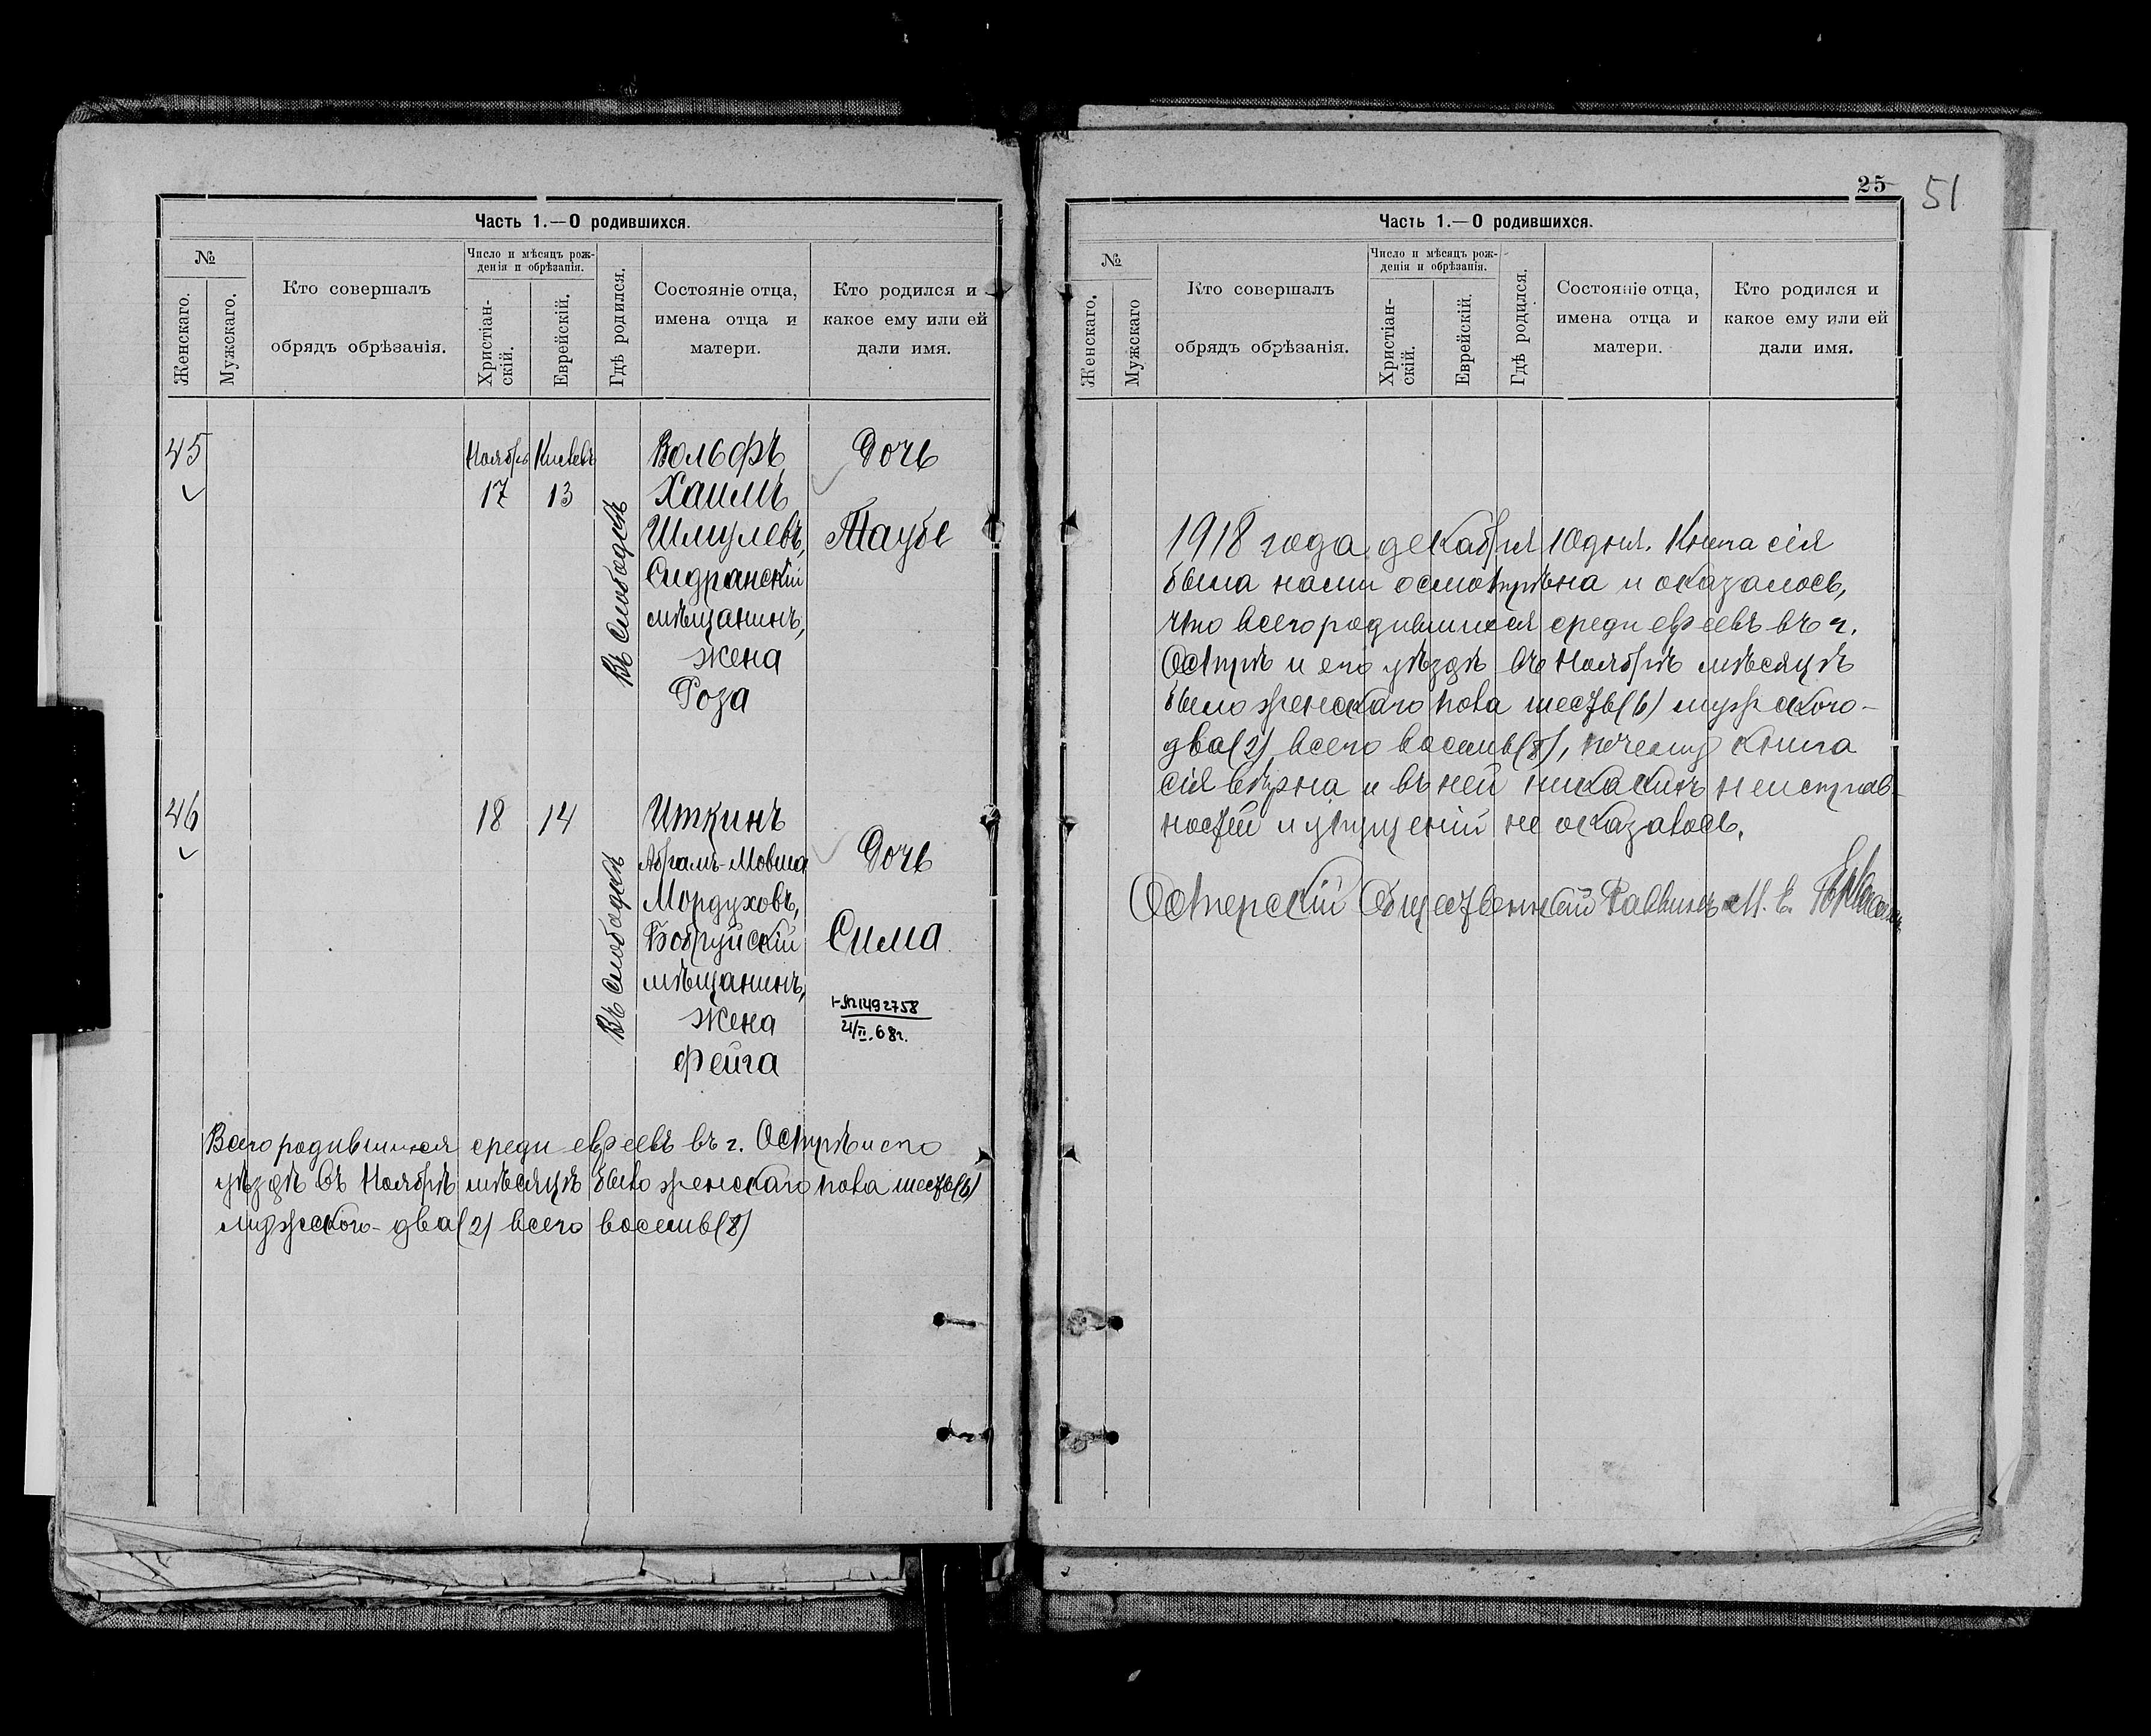 Часть 1.—О родившихся.
№
Женскаго.
Мужскаго.
Кто совершалъ
обрядъ обрѣзанія.
Число и мѣсяцъ рож-
денія и обрѣзанія.
Христіан-
скій.
Еврейскій.
Гдѣ родился.
Состояніе отца,
имена отца и
матери.
Кто родился и
какое ему или ей
дали имя.
45
Ноябрь
Кислевъ
17
13
Въ Слободкѣ
Вольфъ
Хаимъ
Шмулевъ,
мѣщанинъ,
жена
Роза
Дочь
Таубе
46
18
14
Въ Слободкѣ
Иткинъ
Абрамъ-Мовша
Мордуховъ,
Бобруйскій
мѣщанинъ,
жена
Фейга
Дочь
Сима
1492758
21/II.68г.
Всего родившихся среди евреевъ въ г. Острѣ и его
уѣздѣ въ Ноябрѣ мѣсяцѣ было женскаго пола шесть(6)
мужского-два(2) всего восемь(8)
25
51
Часть 1.—О родившихся.
№
Женскаго.
Мужскаго
Кто совершалъ
обрядъ обрѣзанія.
Число и мѣсяцъ рож-
денія и обрѣзанія.
Христіан-
скій.
Еврейскій.
Гдѣ родился.
Состояніе отца,
имена отца и
матери.
Кто родился и
какое ему или ей
дали имя.
1918 года декабря 10 дня. Книга сія
была нами осмотрѣна и оказалось,
что всего родившихся среди евреевъ въ г.
Острѣ и его уѣздѣ въ Ноябрѣ мѣсяцѣ
было женскаго пола шесть(6) мужского-
два(2) всего восемь(8), почему книга
сія вѣрна и въ ней никакихъ неисправ-
ностей и упущеній не оказалось.
Остерскій Общественный Раввинъ М. Е.